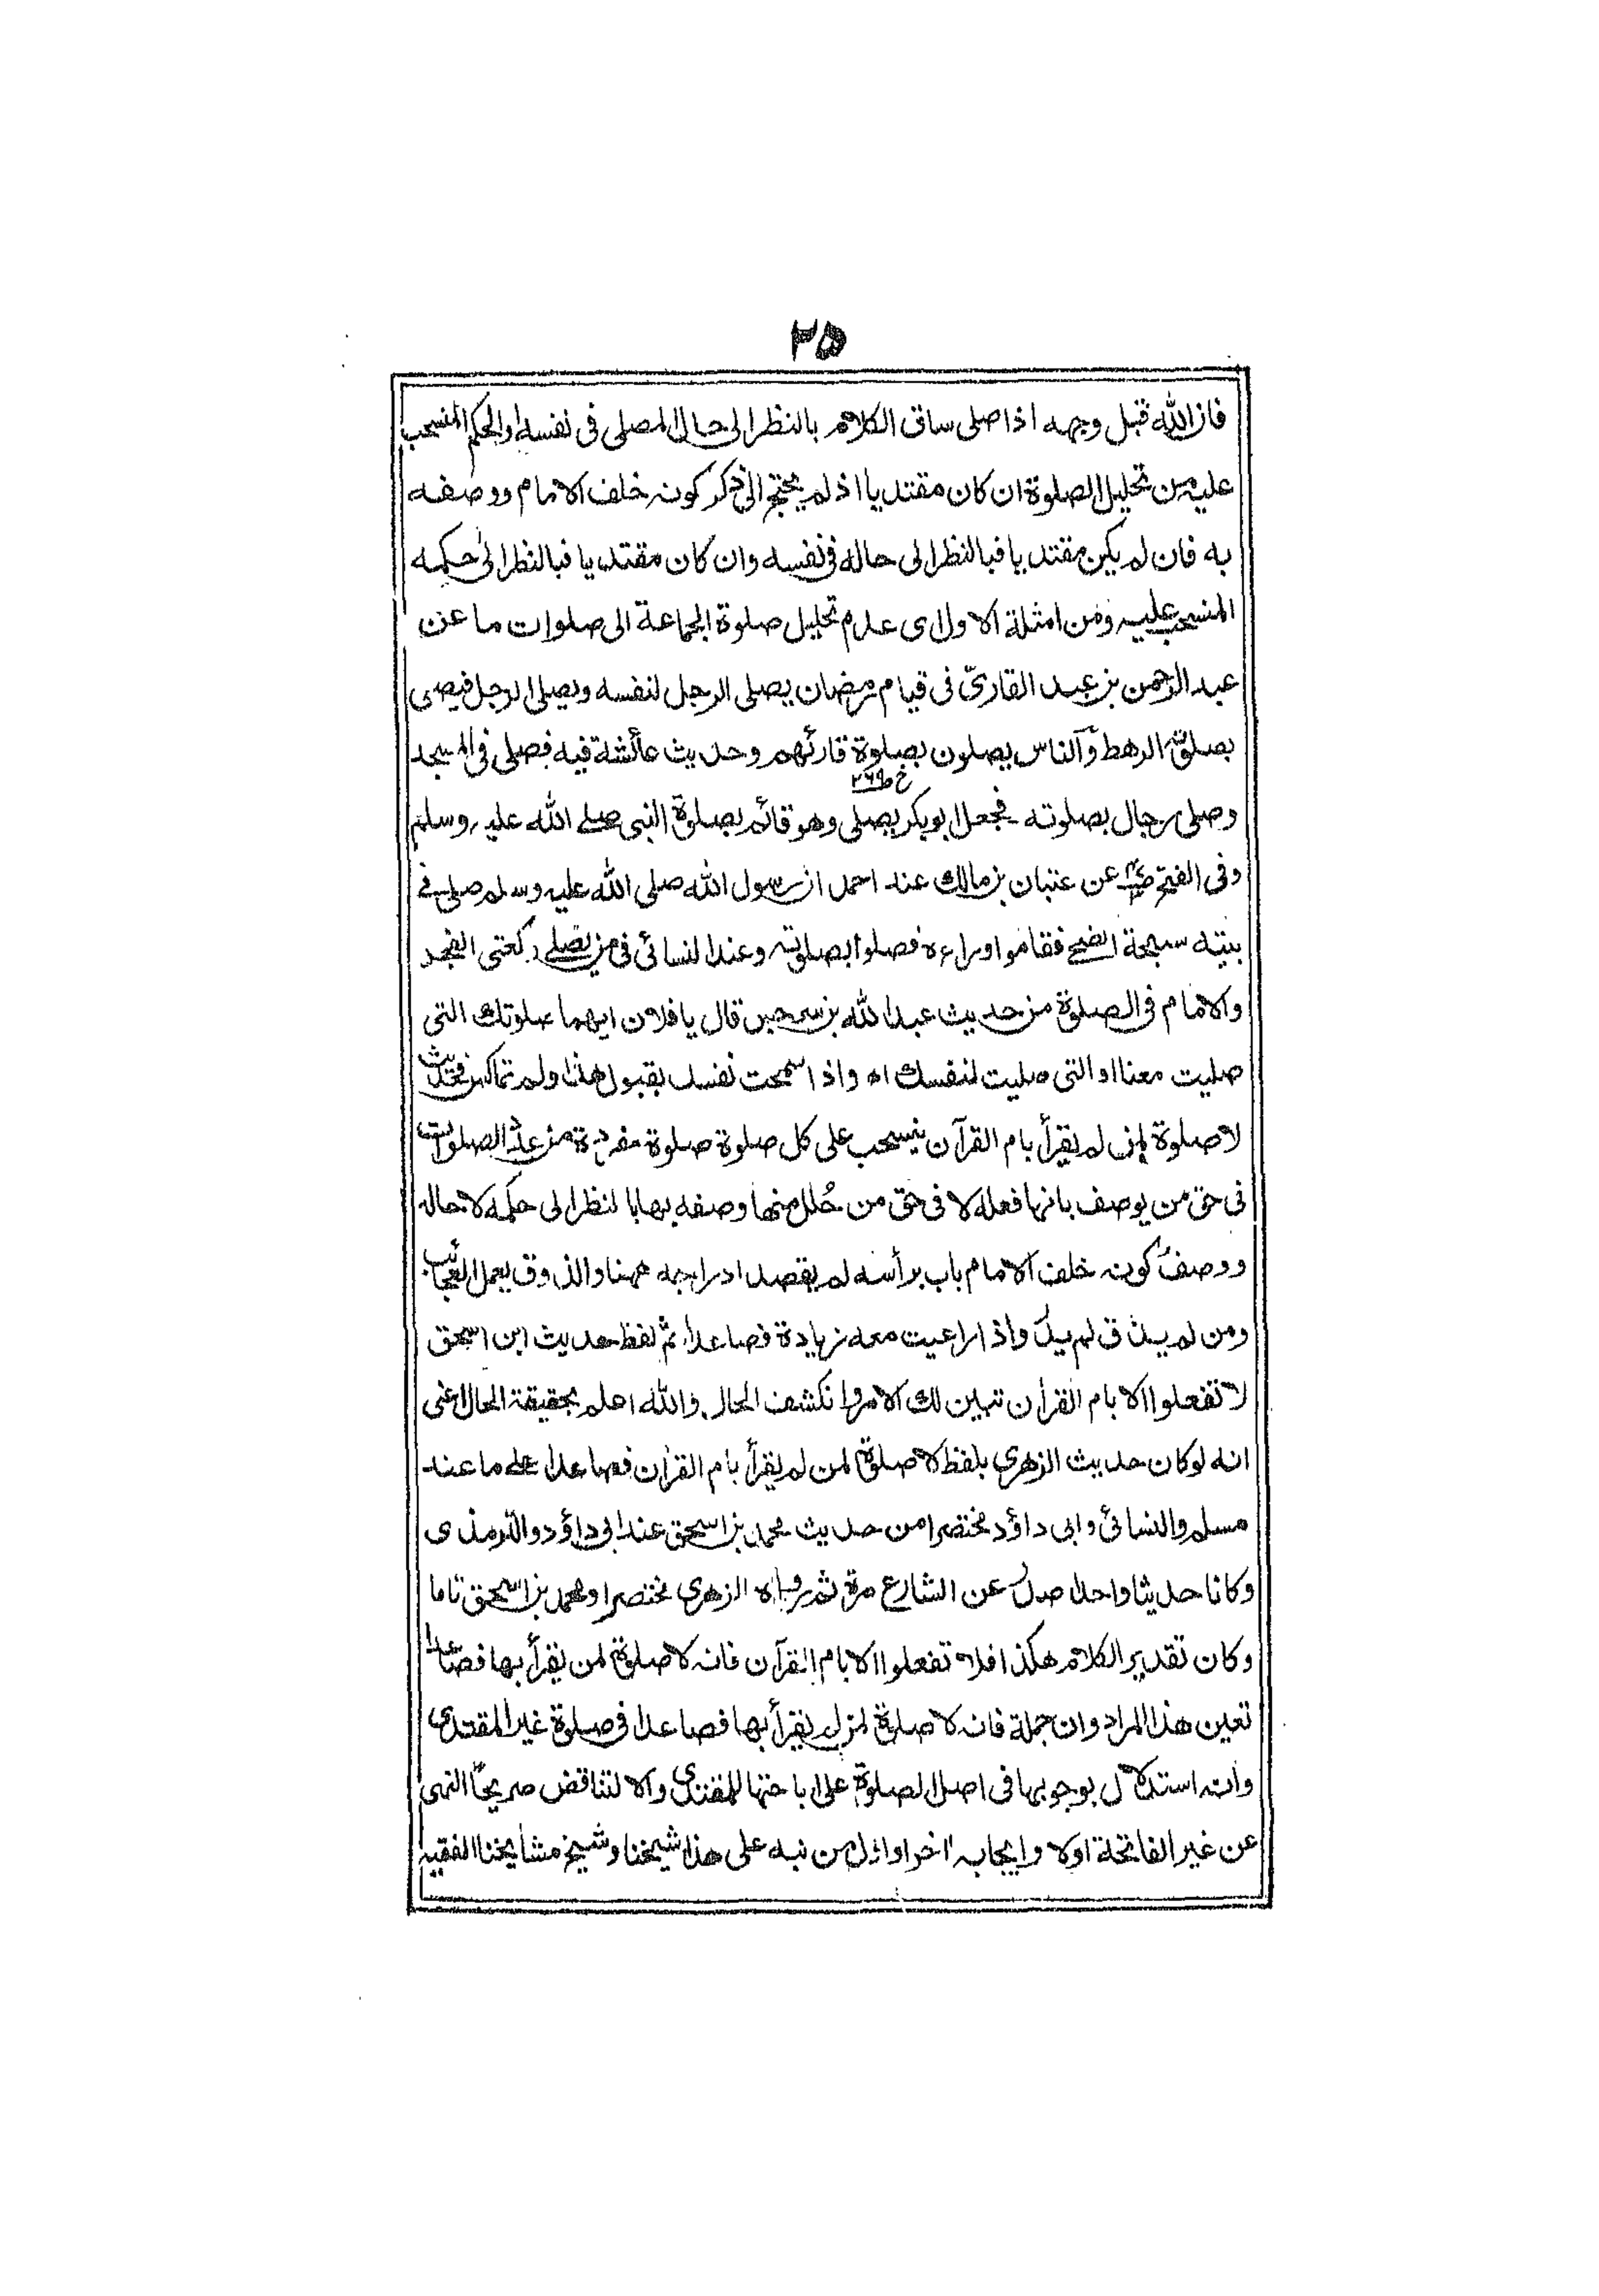 ٢٥
فان الله قبل وجهه اذا صلى ساق الكلام بالنظر الى حال المصلى فى نفسه او الحكم المنسحب
عليه من تحليل الصلوة ان كان مقتديا اذ لم يحتج الى ذكر كونه خلف الامام ووصفه
به فان لم يكن مقتديا فبالنظر الى حاله فى نفسه وان كان مقتديا فبالنظر الى حكمه
المنسحب عليه ومن امثلة الاول اى عدم تحليل صلوة الجماعة الى صلوات ما عن
عبد الرحمن بن عبد القارىّ فى قيام رمضان يصلى الرجل لنفسه ويصلى الرجل فيصلى
بصلوته الرهط والناس يصلون بصلوة قارئهم وحديث عائشة فيه فصلى فى المسجد
خ ص٢٦٩
وصلى رجال بصلوته فجعل ابوبكر يصلى وهو قائم بصلوة النبى صلے الله عليه وسلم
وفى الفتح عن عتبان بن مالك عند احمد ان رسول الله صلى الله عليه وسلم صلى فے
بيته سبحة الضحے فقاموا وراءه فصلوا بصلوته وعند النسائى فى من يصلے ركعتى الفجر
والامام فى الصلوة من حديث عبد الله بن سرجس قال يا فلان ايهما صلوتك التى
صليت معنا او التى صليت لنفسك اه واذا سمحت نفسك بقبول هذا ولم تماكس فحديث
لا صلوة لمن لم يقرأ بام القرآن ينسحب على كل صلوة صلوة مفردة من عدد الصلوات
فى حق من يوصف بانها فعله لا فى حق من حُلل منها وصفه بها بالنظر الى حكمه لا حاله
ووصف كونه خلف الامام باب برأسه لم يقصد ادراجه ههنا والذوق يعمل العجائب
ومن لم يذق لم يدر واذا راعيت معه زيادة فصاعدا، ثم لفظ حديث ابن اسحق
لا تفعلوا الا بام القرأن تبين لك الامر وانكشف الحال والله اعلم بحقيقة الحال اعنى
انه لو كان حديث الزهرى بلفظ لا صلوة لمن لم يقرأ بام القرأن فصاعدا علے ما عند
مسلم والنسائى وابى داؤد مختصرا من حديث محمد بن اسحق عند ابى داؤد والترمذى
وكانا حديثا واحدا صدر عن الشارع مرة ثم رواه الزهرى مختصرا ومحمد بن اسحق تاما
وكان تقدير الكلام هكذا فلا تفعلوا الا بام القرآن فانه لا صلوة لمن لم يقرأ بها فصاعدا
تعين هذا المراد وان جملة فانه لا صلوة لمن لم يقرأ بها فصاعدا فى صلوة غير المقتدى
وانه استدلال بوجوبها فى اصل الصلوة على اباحتها للمقتدى والا لتناقض صريحًا النهى
عن غير الفاتحة اولا وايجابه اخرا واول من نبه على هذا شيخنا وشيخ مشايخنا الفقيه